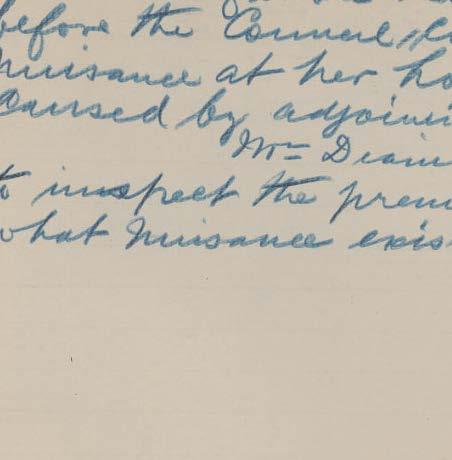 before the Council,
nuisance at her ho
caused by adjoini
Mr= Drain
to inspect the prem
what nuisance exis